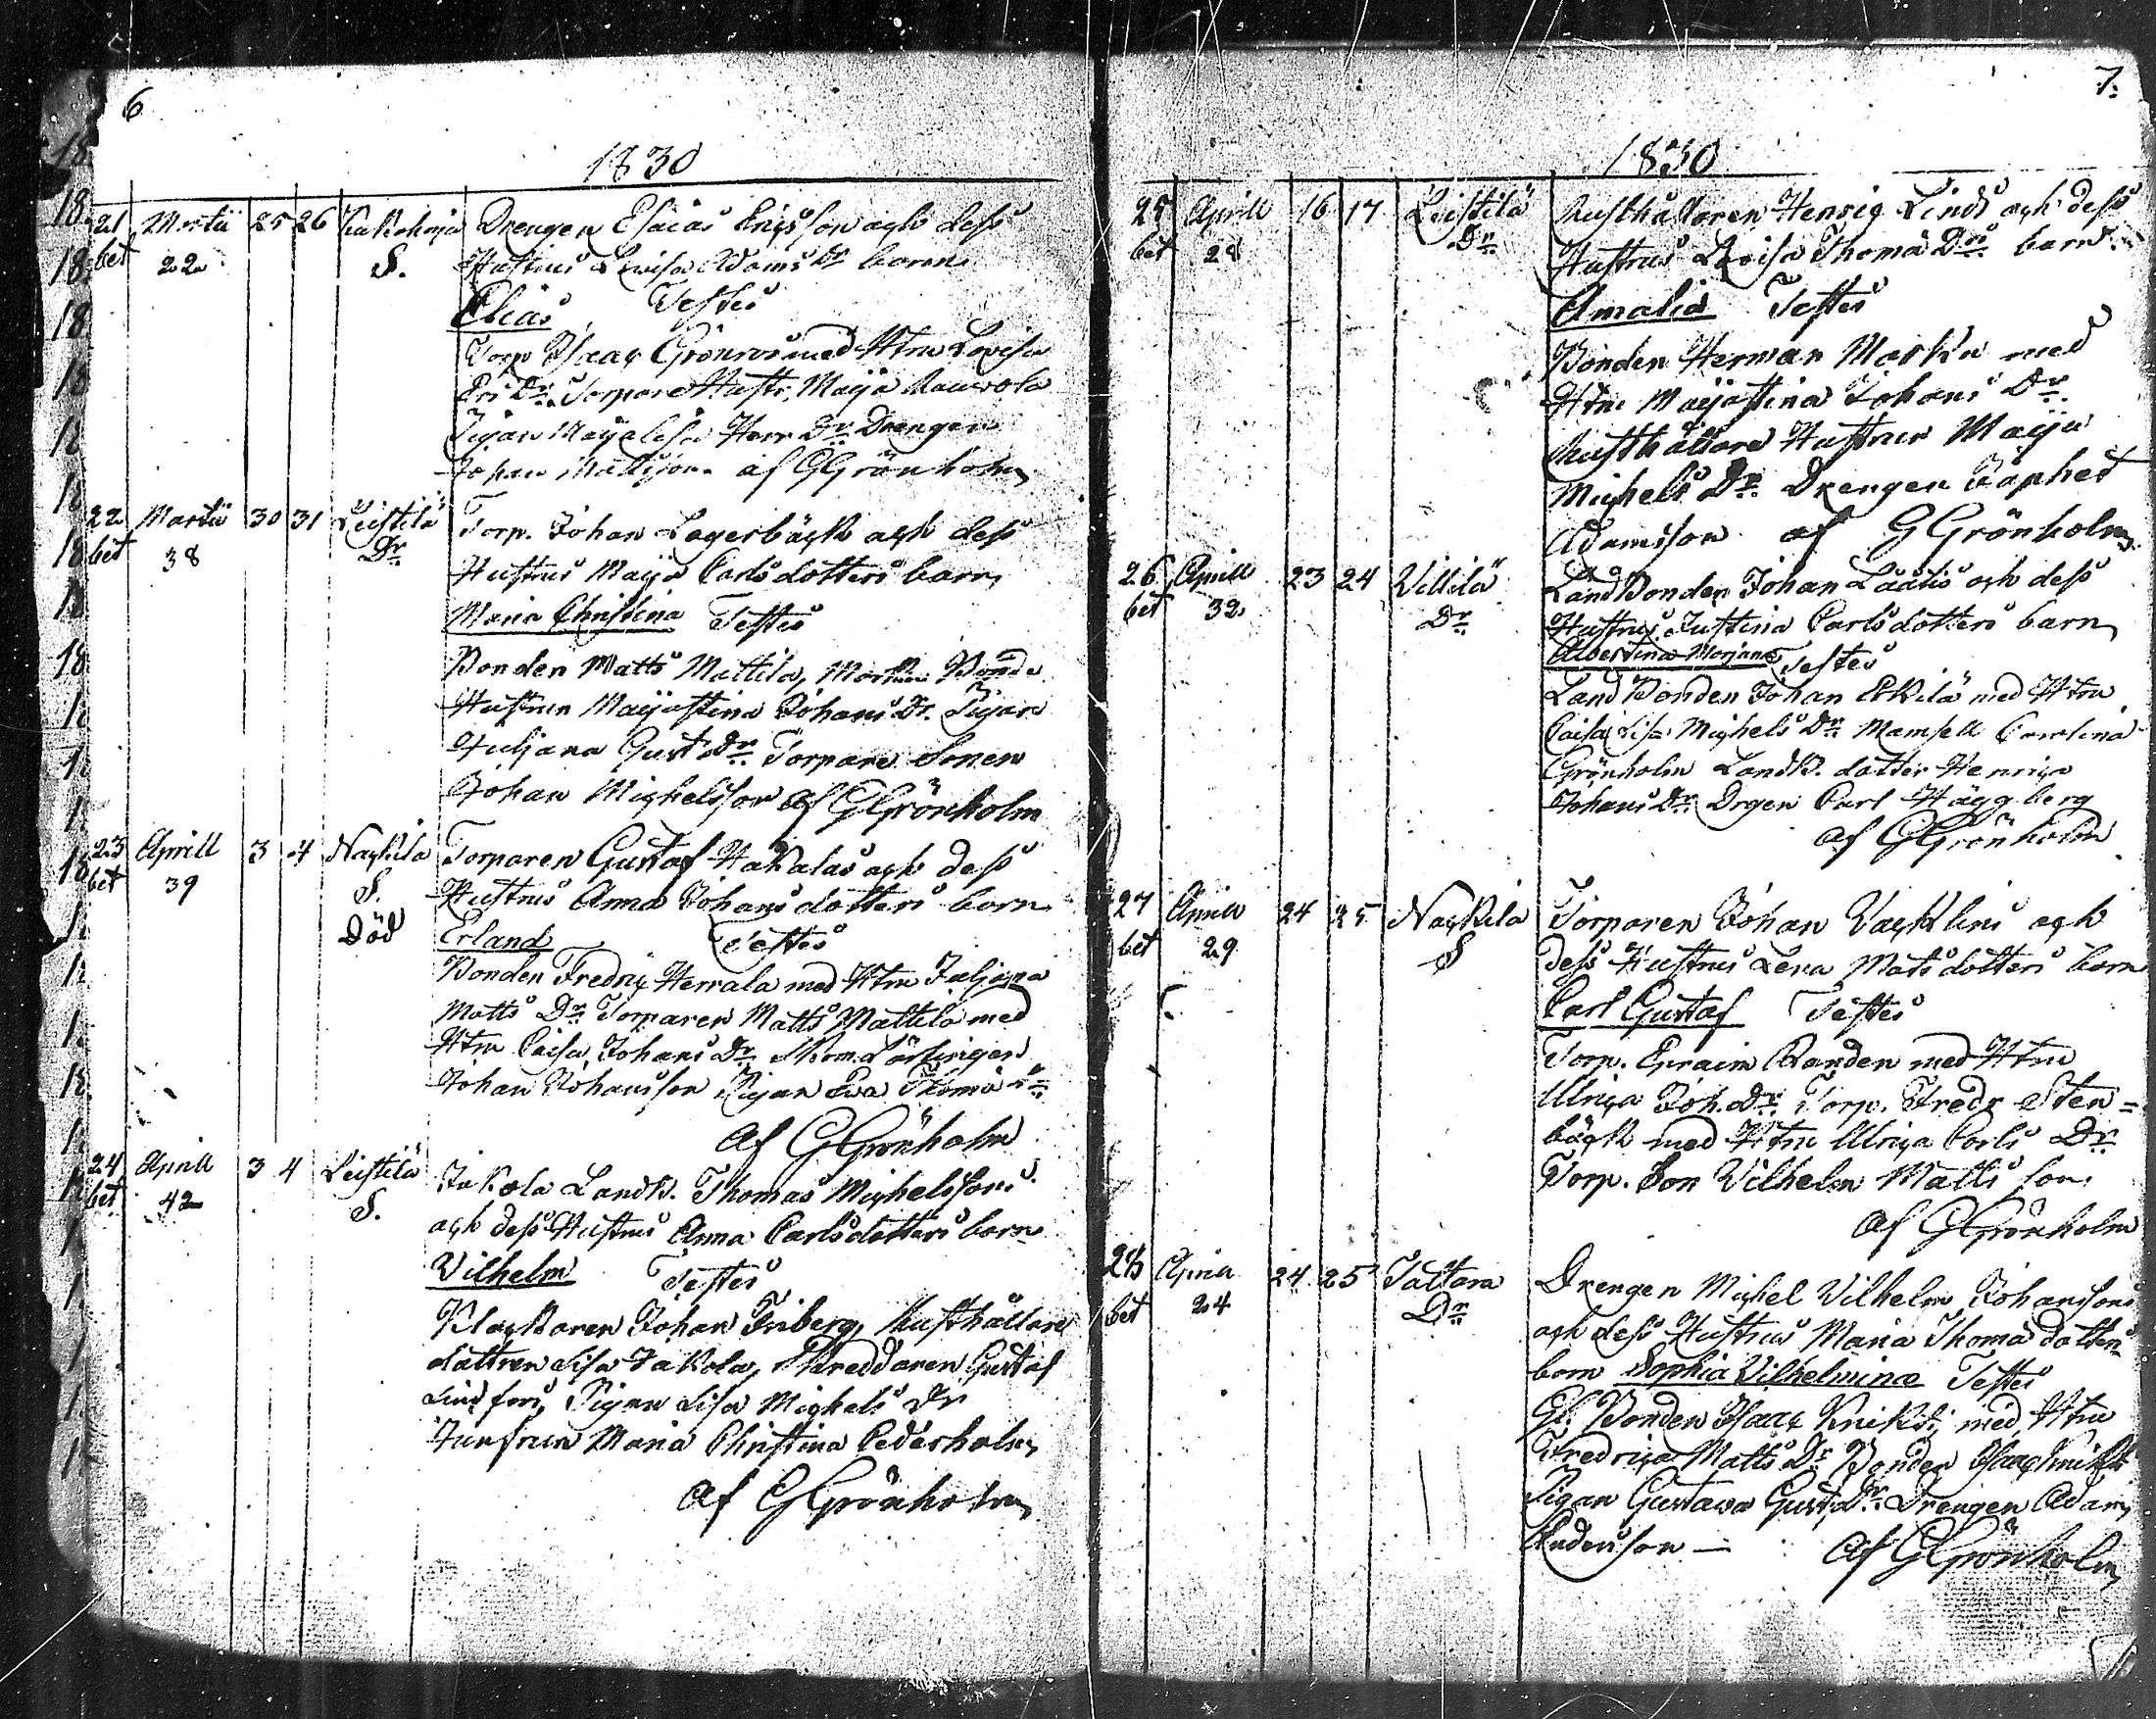 6
1830
21 Martii 25 26 Kakohaja Drengen Esaias Ericsson och dess
bet 22 S. Hustrus Lovisa Adams Dr barn
Elias Testes
Torp Isaac Grönroos med Htru Lovisa
Eri Dr. Torpare Hustr. Maija
Pigan Maijalisa Henr Dr Drengen
Johan Mattsson. af GGrönholm
22 Martii 30 31 Leistilä Torp. Johan Lagerbäck och dess
bet 38 Dr. Hustrus Maija Carlsdotters barn
Maria Christina Testes
Bonden Matts Mattila, Bonde
Hustrun Maijastina Johans Dr. Pigan
Huljana Gust Dr. Torpare Sonen
Johan Michelsson af GGrönholm
23 Aprill 3 4 Nackila Torparen Gustaf Hakalas och dess
bet 39 S. Hustrus Anna Johansdotters barn
Död Erland Testes
Bonden Fredric Herrala med Htru Juljana
Matts Dr. Torparen Matts Mattila med
Htru Caisa Johans Dr. Skom. Lärlingen
Johan Johansson Pigan Eva Thomæ Dr.
af GGrönholm
24 Aprill 3 4 Leistilä Jakola Landb. Thomas Michelssons
bet 42 S. och dess Hustrus Anna Carlsdotters barn
Vilhelm Testes
Klockaren Johan Friberg, Rusthållare
dottren Lisa Jakola, Skreddaren Gustaf
Lindfors, Pigan Lisa Michels Dr
Junfrun Maria Christina Cederholm
af GGrönholm
7.
1830
25 Aprill 16 17 Leistilä Rusthållaren Henric Linds och dess
bet 28 Dr. Hustrus Lovisa Thomæ Drs. barn
Amalia Testes
Bonden Herman Marku med
Htru Maijastina Johans Dr.
Rusthållare Hustrun Maija
Michels Dr. Drengen Japhet
Adamsson af GGrönholm
26 Aprill 23 24 Villilä Land Bonden Johan Laatis och dess
bet 32 Dr. Hustrus Justina Carlsdotters barn
Albertina Testes
Land Bonden Johan Erkilä med Htru
Caisa Lisa Michels Dr. Mamsell Carolina
Grönholm Landb. dotter Henrica
Johans Dr. Drgen Carl Häggberg
af GGrönholm
27 Aprill 24 25 Nackila Torparen Johan Vacklins och
bet 29 S dess Hustrus Lena Matsdotters barn
Carl Gustaf Testes
Torp. Epraim Randen med Htru
Ulrica Joh. Dr. Torp. Fredr Sten=
bäck med Htru Ulrica Carls Dr
Torp. Son Vilhelm Matts son.
af GGrönholm
28 Aprill 24 25 Tattara Drengen Michel Vilhelm Johanssons
bet 24 Dr. och dess Hustrus Maria Thomæ dotters
barn Sophia Vilhelmina Testes
Gl. Bonden Isaac Knikti, med Htru
Fredrica Matts Dr Bonden Isaac Knikti
Pigan Gustava Gust. Dr. Drengen Adam
Andersson — af GGrönholm